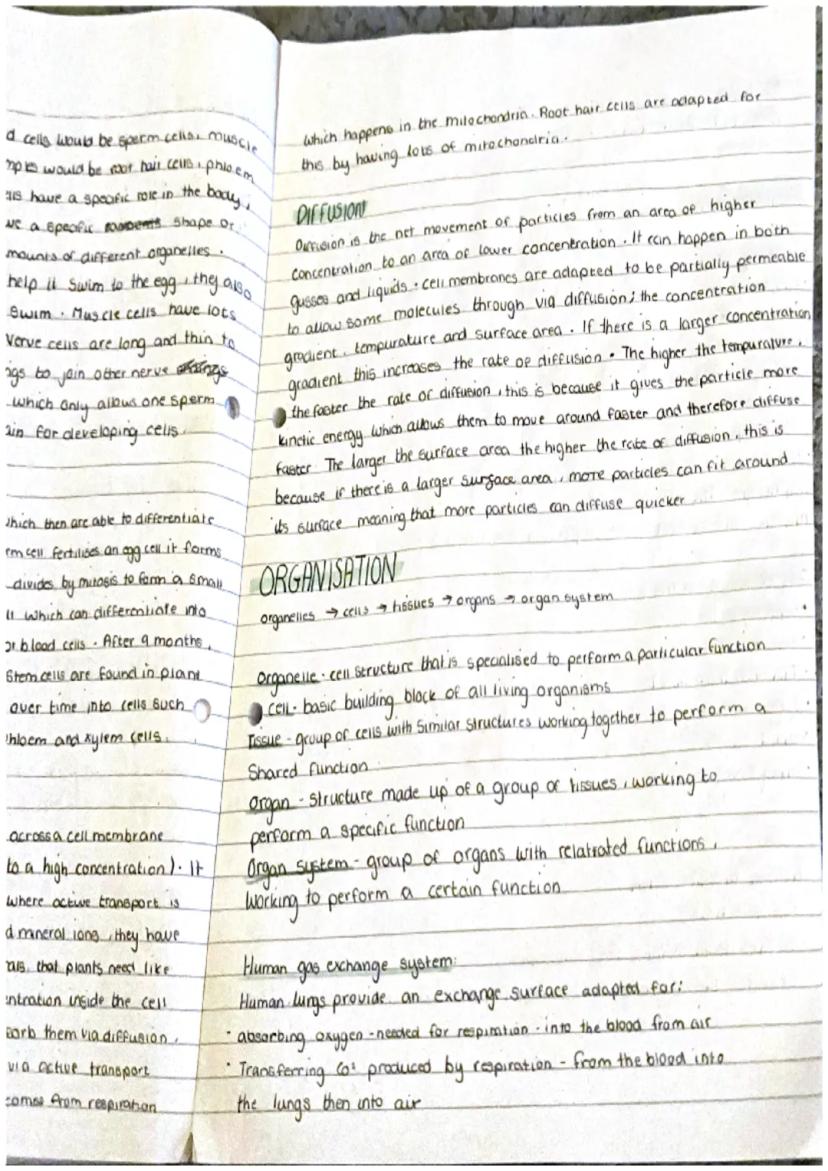 d cells would be sperm cells, muscle
would be root hair cells, phloem
have a specific role in the body,
a specific shape or
mounts of different organelles.
help it swim to the egg, they also
swim. Muscle cells have lots
Nerve cells are long and thin to
ngs to join other nerve
which only allows one sperm
ain for developing cells.
which then are able to differentiate
em cell fertilises an egg cell it forms
divides by mitosis to form a small
ll which can differentiate into
or blood cells. After 9 months,
Stem cells are found in plant
over time into cells such
hloem and xylem cells.
across a cell membrane
to a high concentration). It
where active transport is
d mineral ions, they have
that plants need like
entration inside the cell
sorb them via diffusion,
via active transport
comes from respiration
which happens in the mitochondria. Root hair cells are adapted for
this by having lots of mitochondria.
DIFFUSION
Diffusion is the net movement of particles from an area of higher
concentration to an area of lower concentration. It can happen in both
gusses and liquids. cell membranes are adapted to be partially permeable
to allow some molecules through via diffusion; the concentration
gradient, tempurature and surface area. If there is a larger concentration
gradient this increases the rate of diffusion. The higher the tempurature,
the faster the rate of diffusion, this is because it gives the particle more
kinetic energy which allows them to move around faster and therefore diffuse
faster. The larger the surface area the higher the rate of diffusion, this is
because if there is a larger surface area, more particles can fit around
its surface meaning that more particles can diffuse quicker
ORGANISATION
organelles → cells → tissues → organs → organ system
Organelle - cell structure that is specialised to perform a particular function
cell - basic building block of all living organisms
Tissue - group of cells with similar structures working together to perform a
shared function
Organ - structure made up of a group of tissues, working to
perform a specific function
Organ system - group of organs with relatrated functions,
working to perform a certain function
Human gas exchange system:
Human lungs provide an exchange surface adapted for:
· absorbing oxygen - needed for respiration - into the blood from air
· Transferring CO² produced by respiration - from the blood into
the lungs then into air